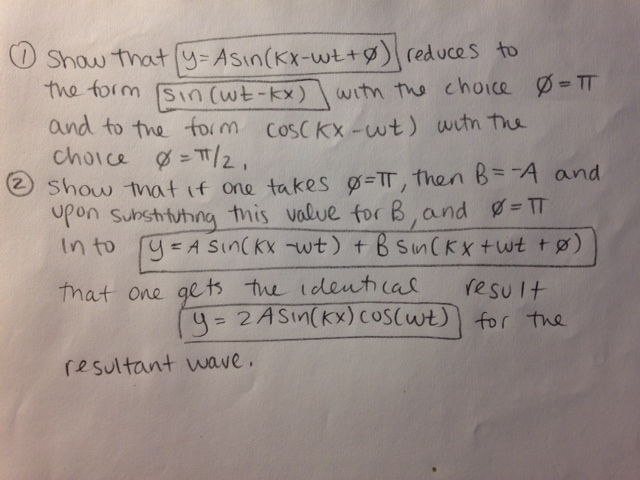 ① Show that y=Asin(Kx-wt+ø) reduces to
the form sin(wt-kx) with the choice ø=π
and to the form cos(Kx-wt) with the
choice ø=π/2.
② Show that if one takes ø=π, then B=-A and
upon substituting this value for B, and ø=π
into y=A sin(Kx-wt) + B sin(Kx+wt+ø)
that one gets the identical result
y = 2 A Sin(Kx) cos(wt) for the
resultant wave.